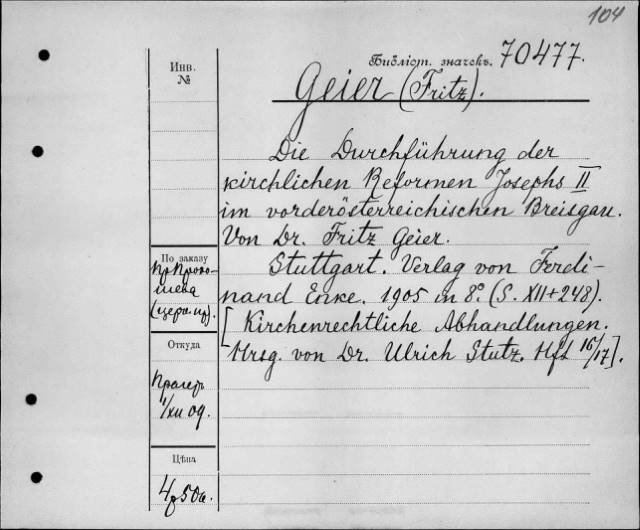 104
Библіот. значекъ. 70477.
Инв.
№
Geier (Fritz).
Die Durchführung der
kirchlichen Reformen Josephs II
im vorderösterreichischen Breisgau.
Von Dr. Fritz Geier.
Stuttgart. Verlag von Ferdi-
nand Enke. 1905 in 8º. (S. XII+248).
[Kirchenrechtliche Abhandlungen.
Hrsg. von Dr. Ulrich Stutz. Hft 16/17].
По заказу
Откуда
1/XII 09.
Цѣна